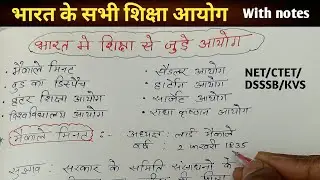 भारत के सभी शिक्षा आयोग With notes
भारत मे शिक्षा से जुड़े आयोग
• मैकाले मिनट
• वुड का डिस्पैच
• हंटर शिक्षा आयोग
• विश्वविद्यालय आयोग
• सैडलर आयोग
• हार्टोग आयोग
• सार्जेंट आयोग
• राधा कृष्णन आयोग
NET/CTET/
DSSSB/KVS
मैकाले मिनट :- अध्यक्ष - लार्ड मैकाले
वर्ष : 2 फरवरी 1835
सुझाव : सरकार के सीमित संसाधनों के